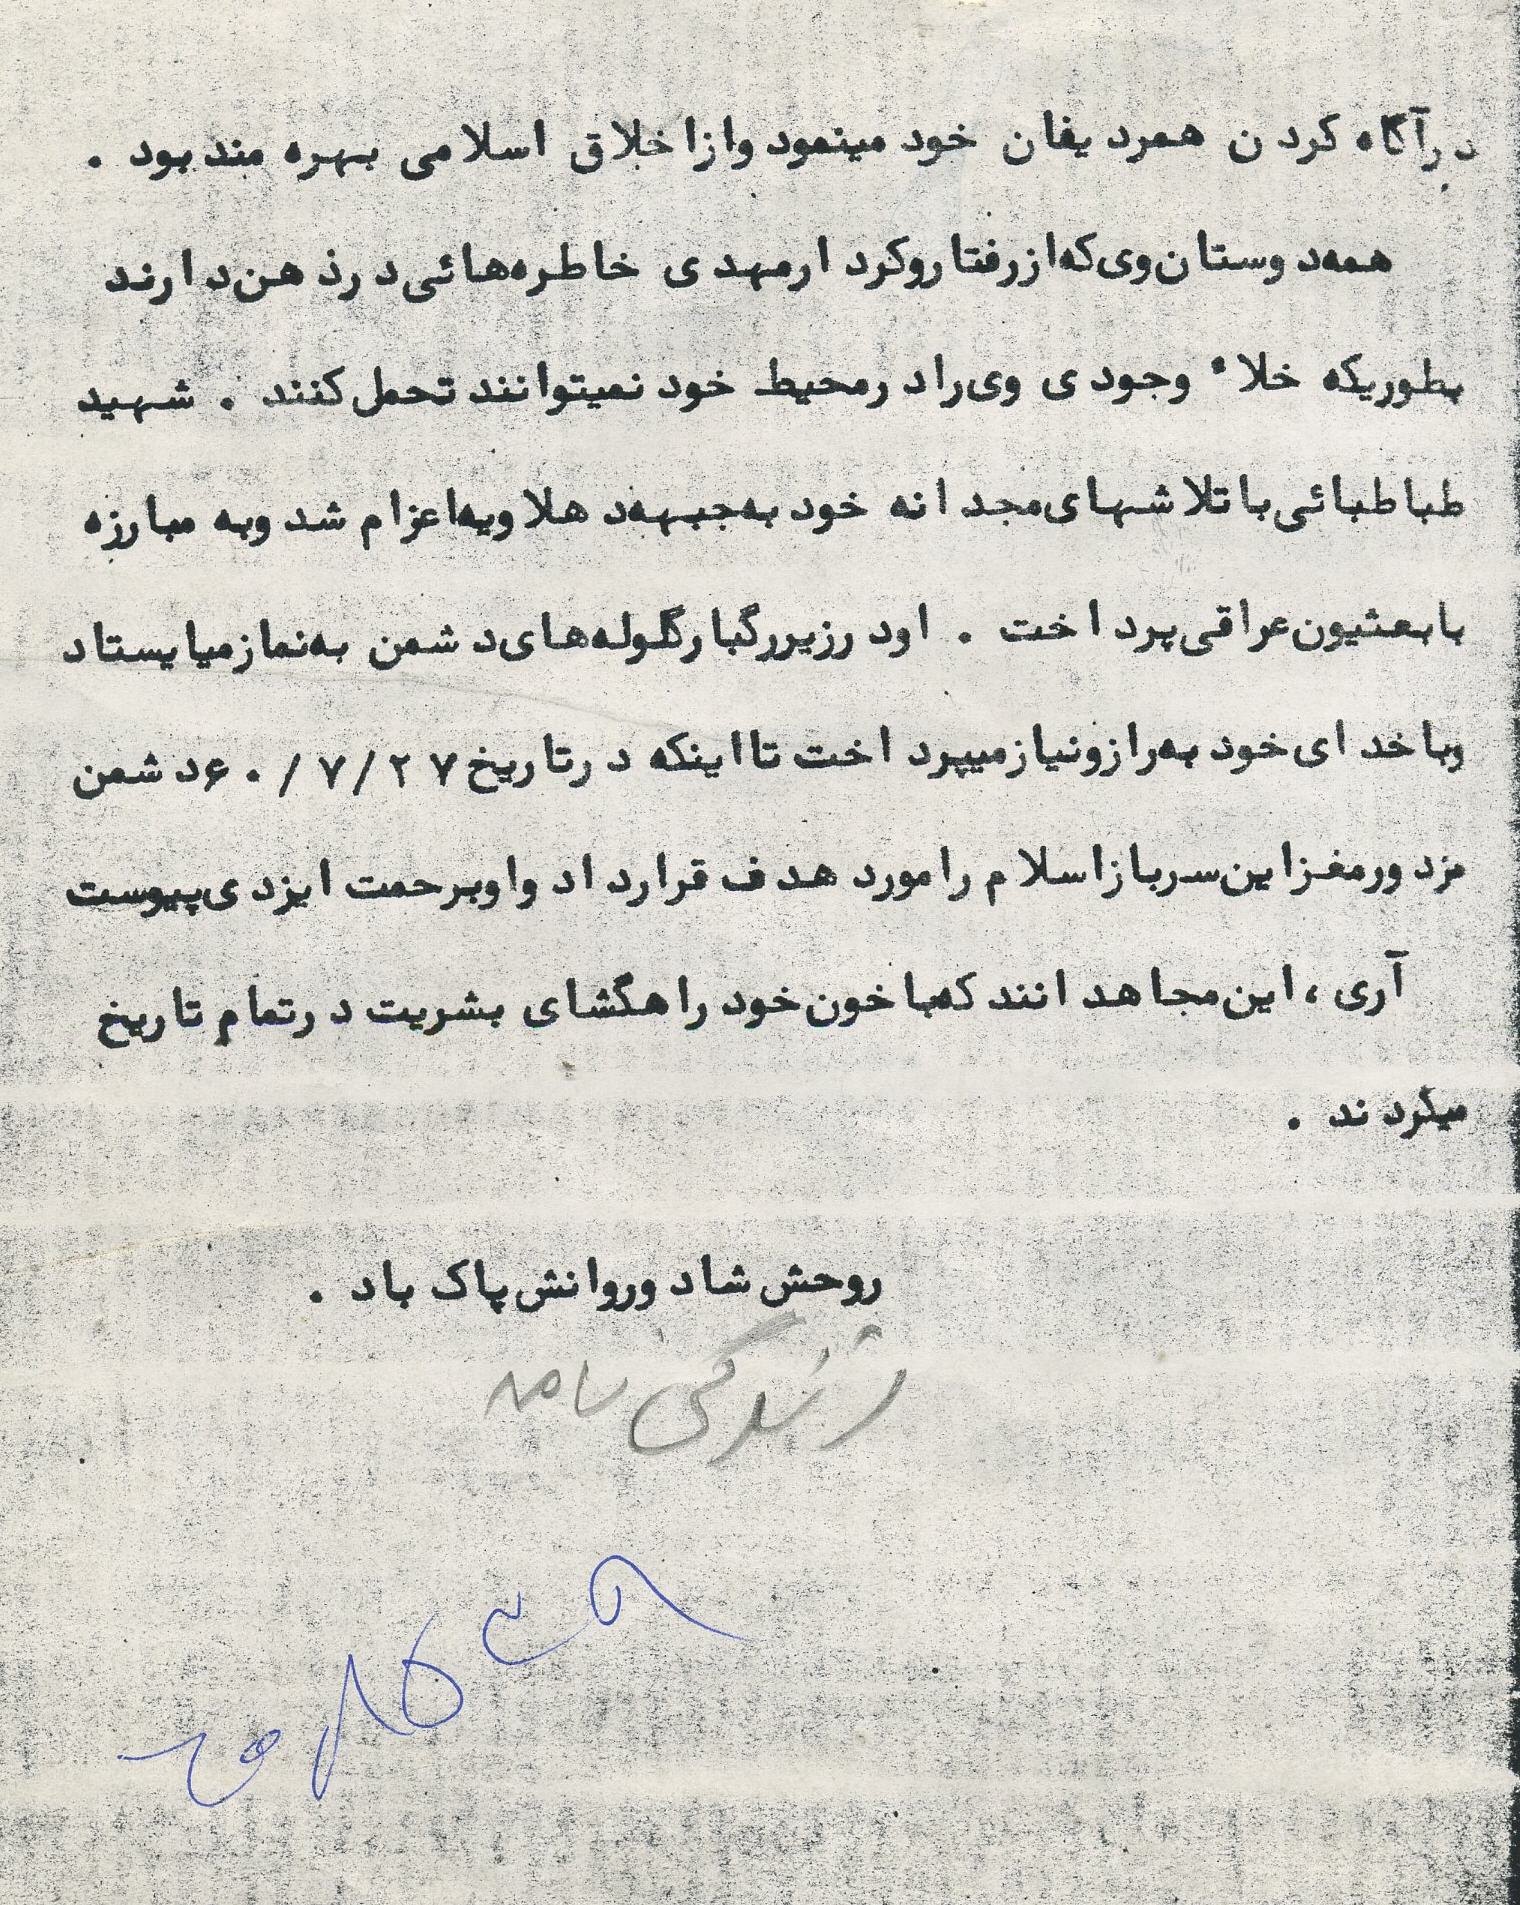 درآگاه کردن همردیفان خود مینمود وازاخلاق اسلامی بهره مند بود .
همه‌دوستان‌وی‌که‌ازرفتاروکردارمهدی خاطره‌هائی‌درذهن‌دارند
بطوریکه خلاء وجودی وی‌رادرمحیط خود نمیتوانند تحمل‌کنند . شهید
طباطبائی‌باتلاشهای‌مجدانه خود به‌جبهه‌دهلاویه‌اعزام شد وبه مبارزه
بابعثیون‌عراقی‌پرداخت . اودرزیررگبارگلوله‌های‌دشمن به‌نمازمیایستاد
وباخدای‌خود به‌رازونیازمیپرداخت تااینکه درتاریخ۲۷/۷/۶۰دشمن
مزدورمغزاین‌سربازاسلام رامورد هدف قرارداد واوبرحمت ایزدی‌پیوست
آری ، این‌مجاهدانند که‌باخون‌خود راهگشای بشریت درتمام تاریخ
میگردند .
روحش شاد وروانش‌پاک باد .
زندگی نامه